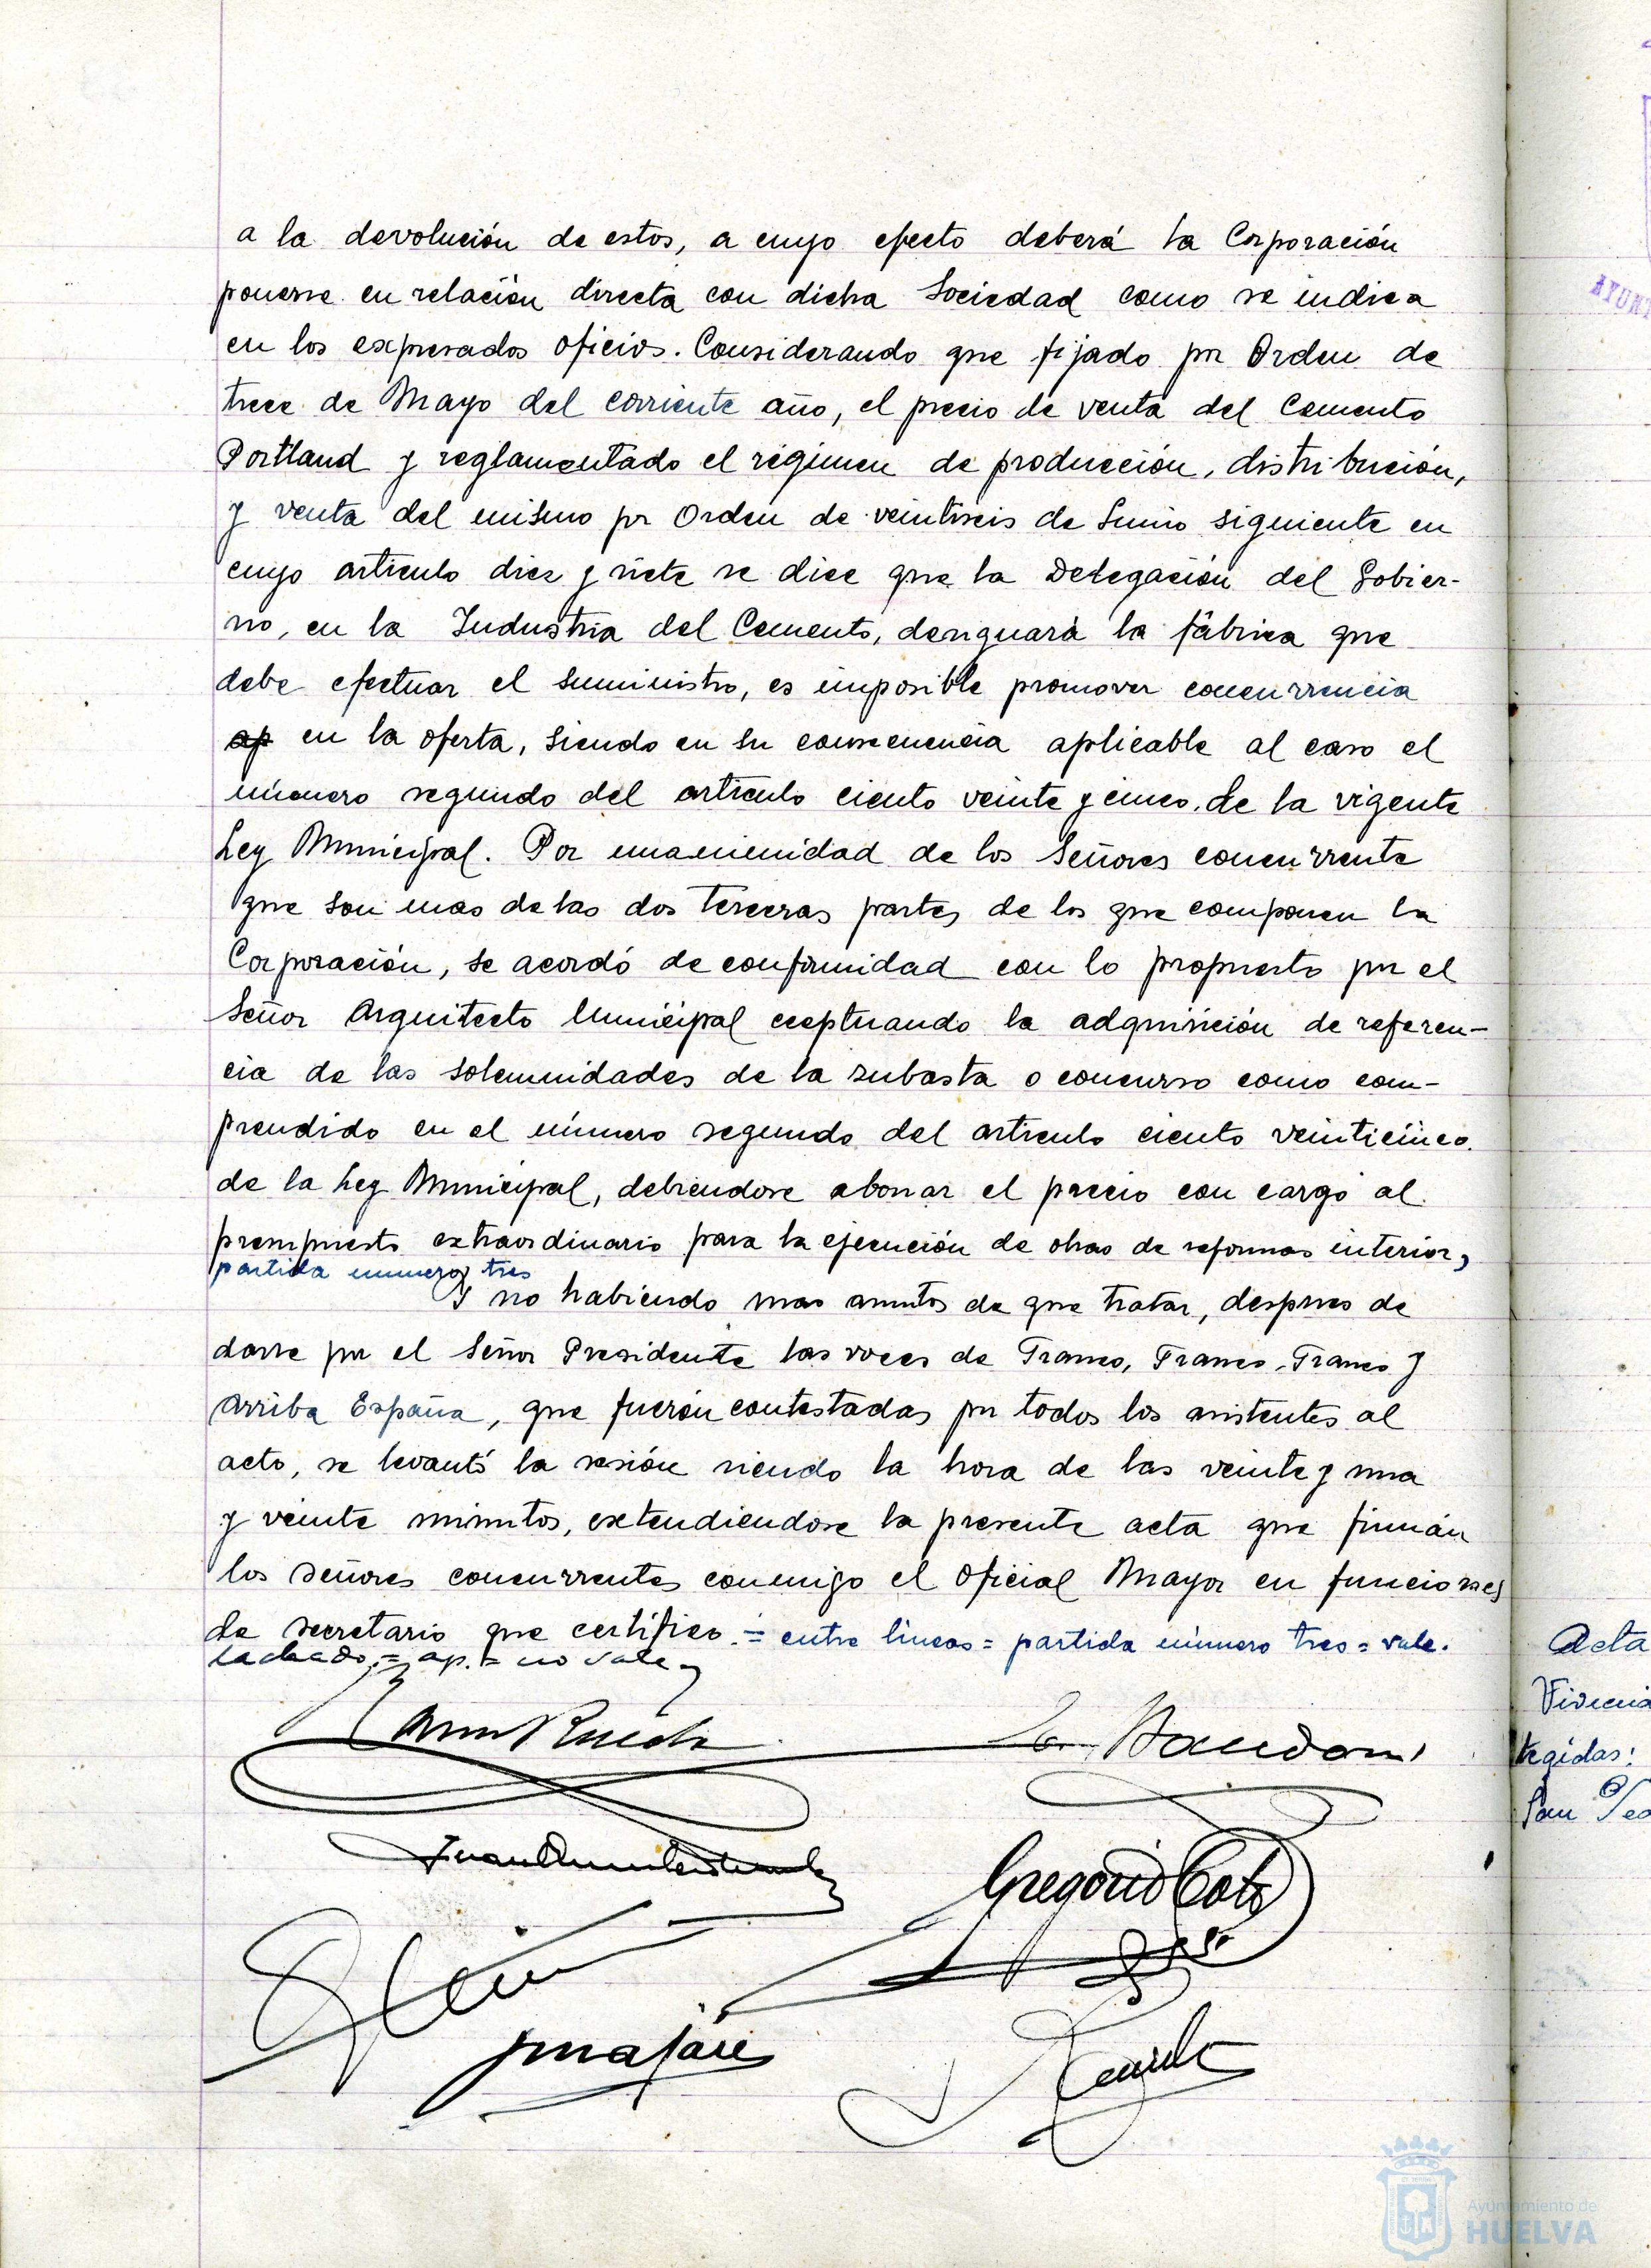 a la devolución de estos, a cuyo efecto deberá la Corporación
ponerse en relación directa con dicha Sociedad como se indica
en los expresados oficios. Considerando que fijado por Orden de
trece de Mayo del corriente año, el precio de venta del Cemento
Portland y reglamentado el régimen de producción, distribución,
y venta del mismo por Orden de veintiseis de Junio siguiente en
cuyo articulo diez y siete se dice que la Delegación del Gobier-
no, en la Industria del Cemento, designará la fábrica que
debe efectuar el suministro, es imposible promover concurrencia
ap en la oferta, siendo en su consecuencia aplicable al caso el
número segundo del articulo ciento veinte y cinco de la vigente
Ley Municipal. Por unanimidad de los Señores concurrente
que son mas de las dos terceras partes de los que componen la
Corporación, se acordó de confirmidad con lo propuesto por el
Señor Arquitecto Municipal exeptuando la adquisición de referen-
cia de las solemnidades de la subasta o concurso como com-
prendido en el número segundo del articulo ciento veinticinco
de la Ley Municipal, debiendose abonar el precio con cargo al
presupuesto extraordinario para la ejecución de obras de reformas interior,
partida numero tres
Y no habiendo mas asuntos de que tratar, despues de
darse por el Señor Presidente las voces de Franco, Franco, Franco y
Arriba España, que fuerón contestadas por todos los asistentes al
acto, se levantó la sesión siendo la hora de las veinte y una
y veinte minutos, extendiendose la presente acta que firmán
los señores concurrentes conmigo el Oficial Mayor en funciones
de secretario que certifico.= entre lineas = partida número tres = vale.
tachado = ap. = no vale
Gregorio Coto
Acta
tegidas:
San
Ayuntamiento de
HUELVA